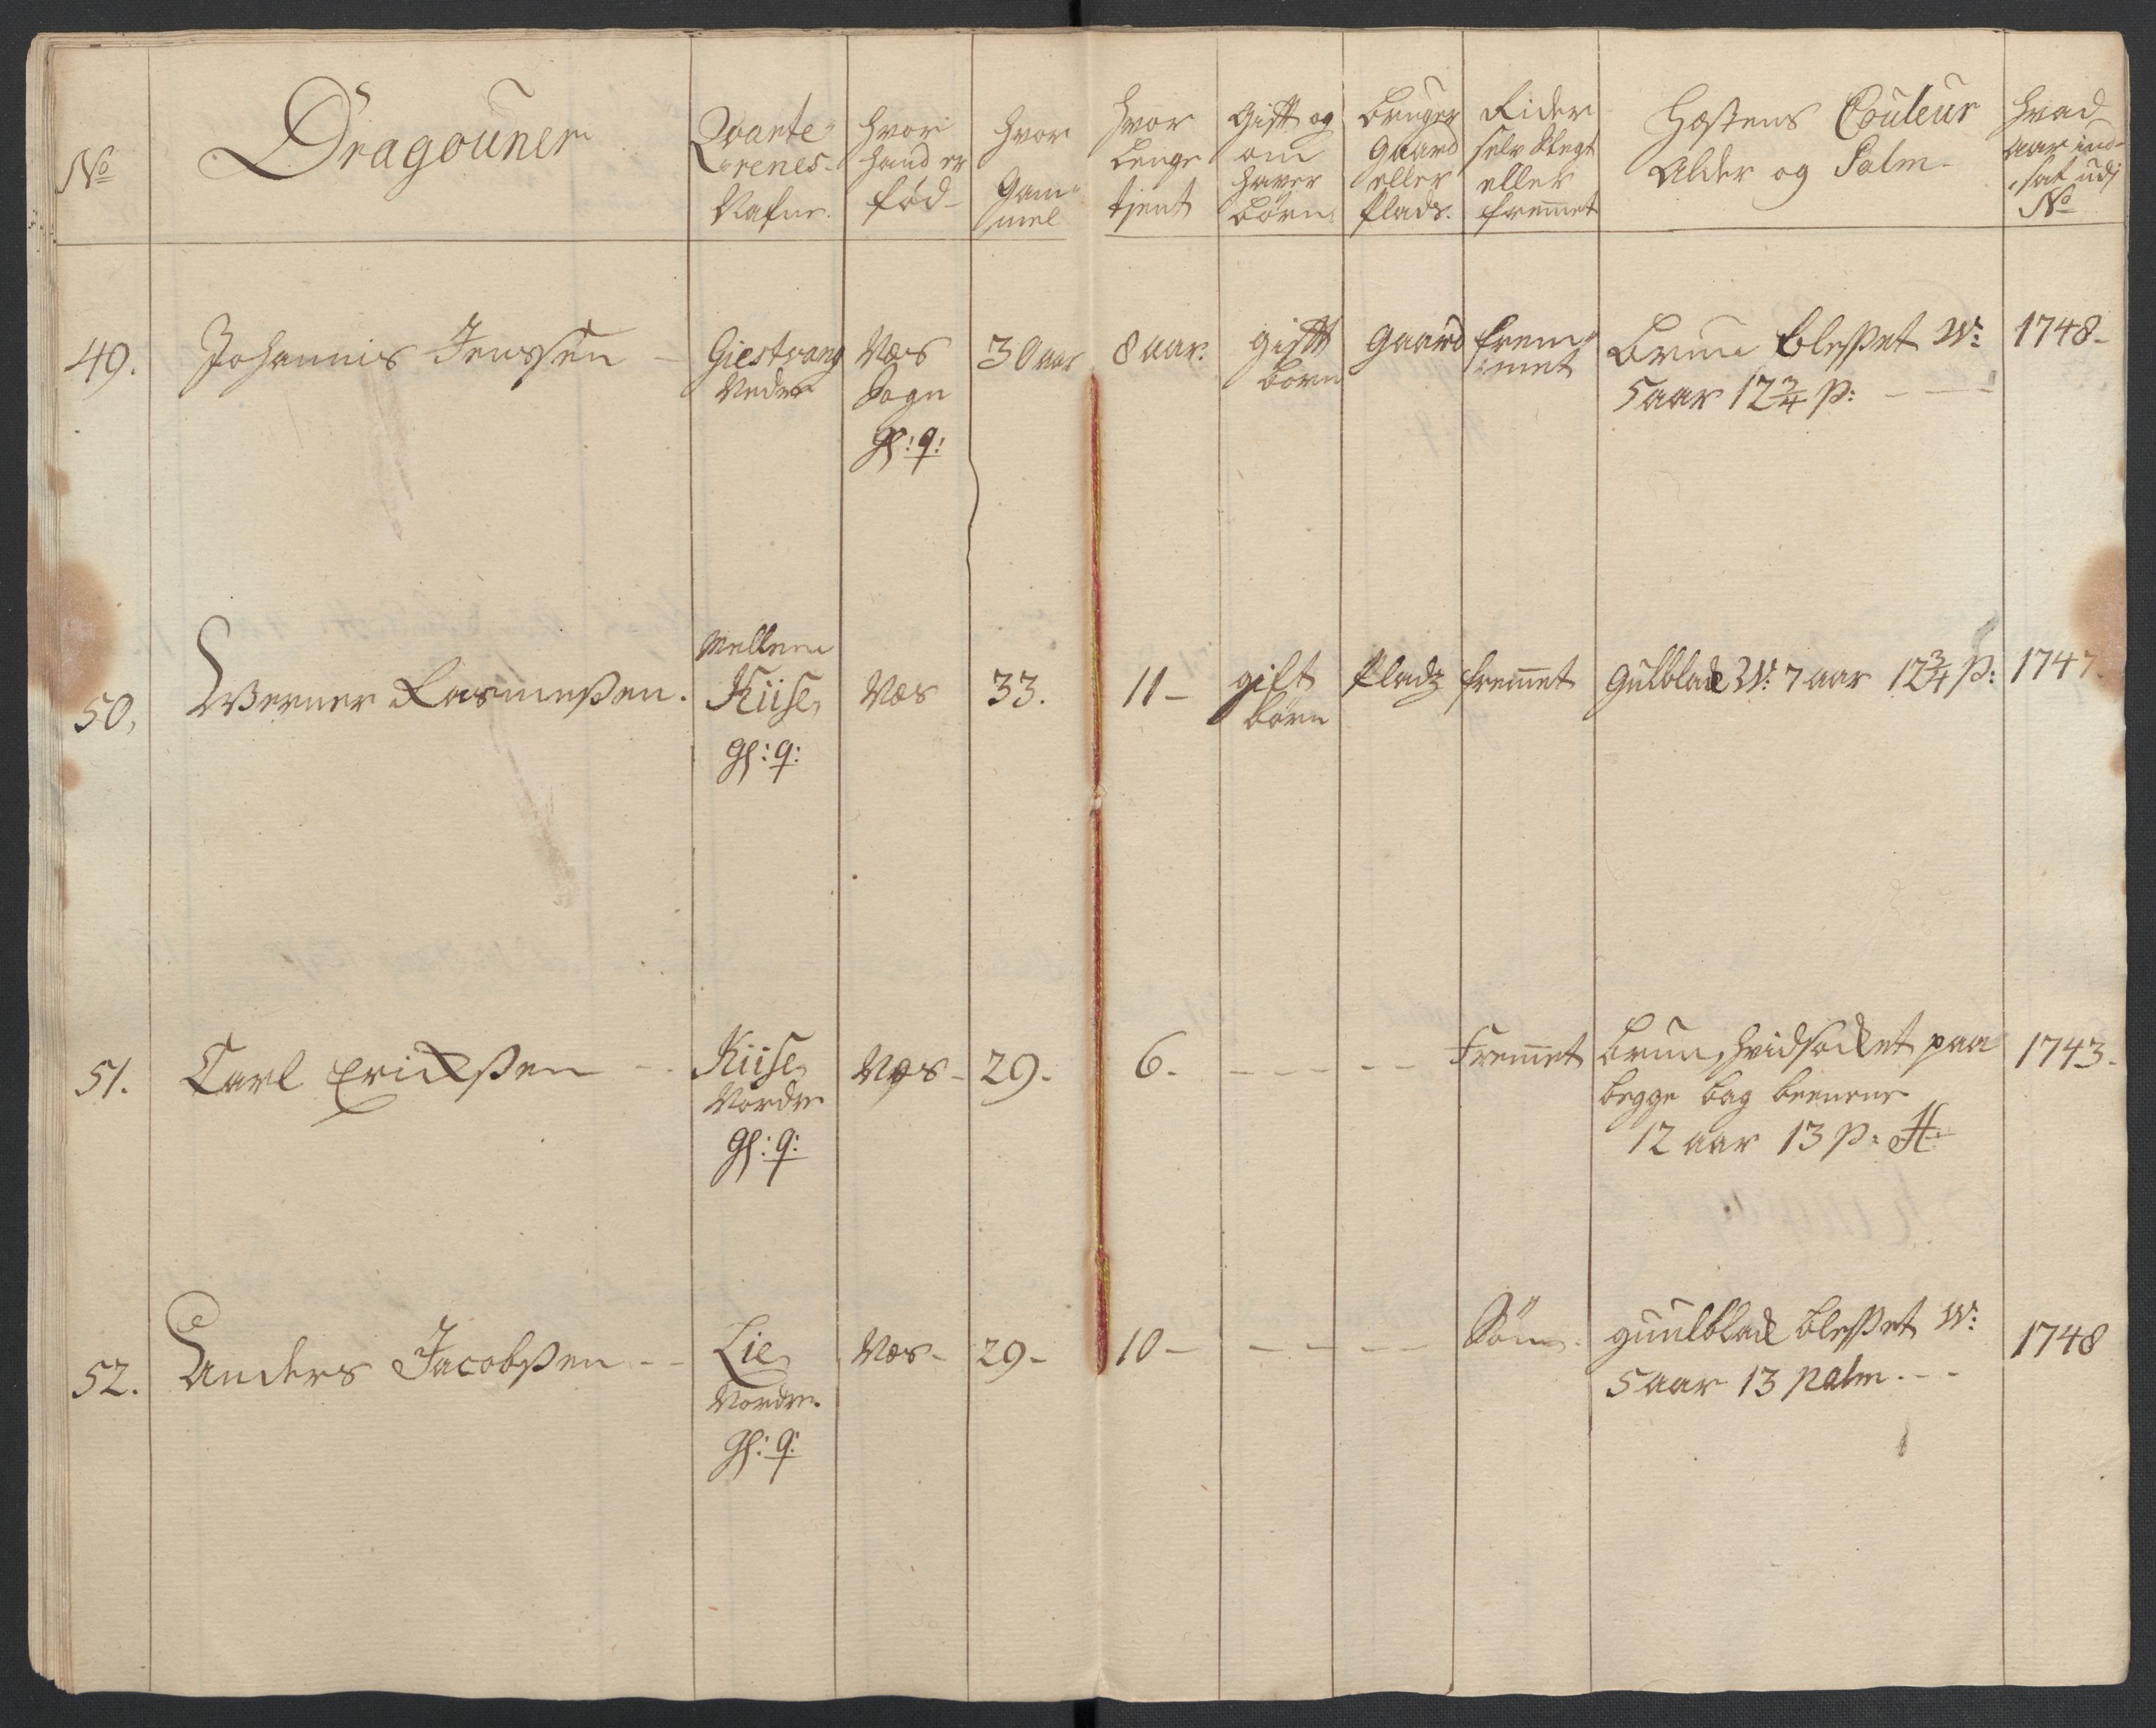 No
Dragouner
Qvarte
renes
Nafne.
hvor
hand er
fød
hvor
Gam
mel
hvor
Lenge
tient
Gift og
om
haver
Børn
Bruger
Gaard
eller
Plads.
Rider
selv
eller
fremmet
Hæstens Couleur
Alder og Palm.
hvad
aar ind
sat udj
No
49.
Johannis Jenssen
Giestvang
Nedre
Næs
Sogn
30 aar
8 aar.
gift
børn
Gaard
frem
met
Bruun blesset W:
5 aar 12 3/4 P:
1748.
50.
Werner Rasmussen.
Mellem
Kiise
Næs
33.
11
gift
børn
Pladz
fremmet
Gulblak W: 7 aar 12 3/4 P:
1747.
51.
Carl Erickssen
Kiise
Nordre
Næs
29.
6.
Fremmet
Brun, hvidsocket paa
begge bag beenene
12 aar 13 P: H
1743.
52.
Anders Jacobssen
Lie
Nordre
Næs
29
10
Søn
guulblak blesset W:
5 aar 13 palm.
1748